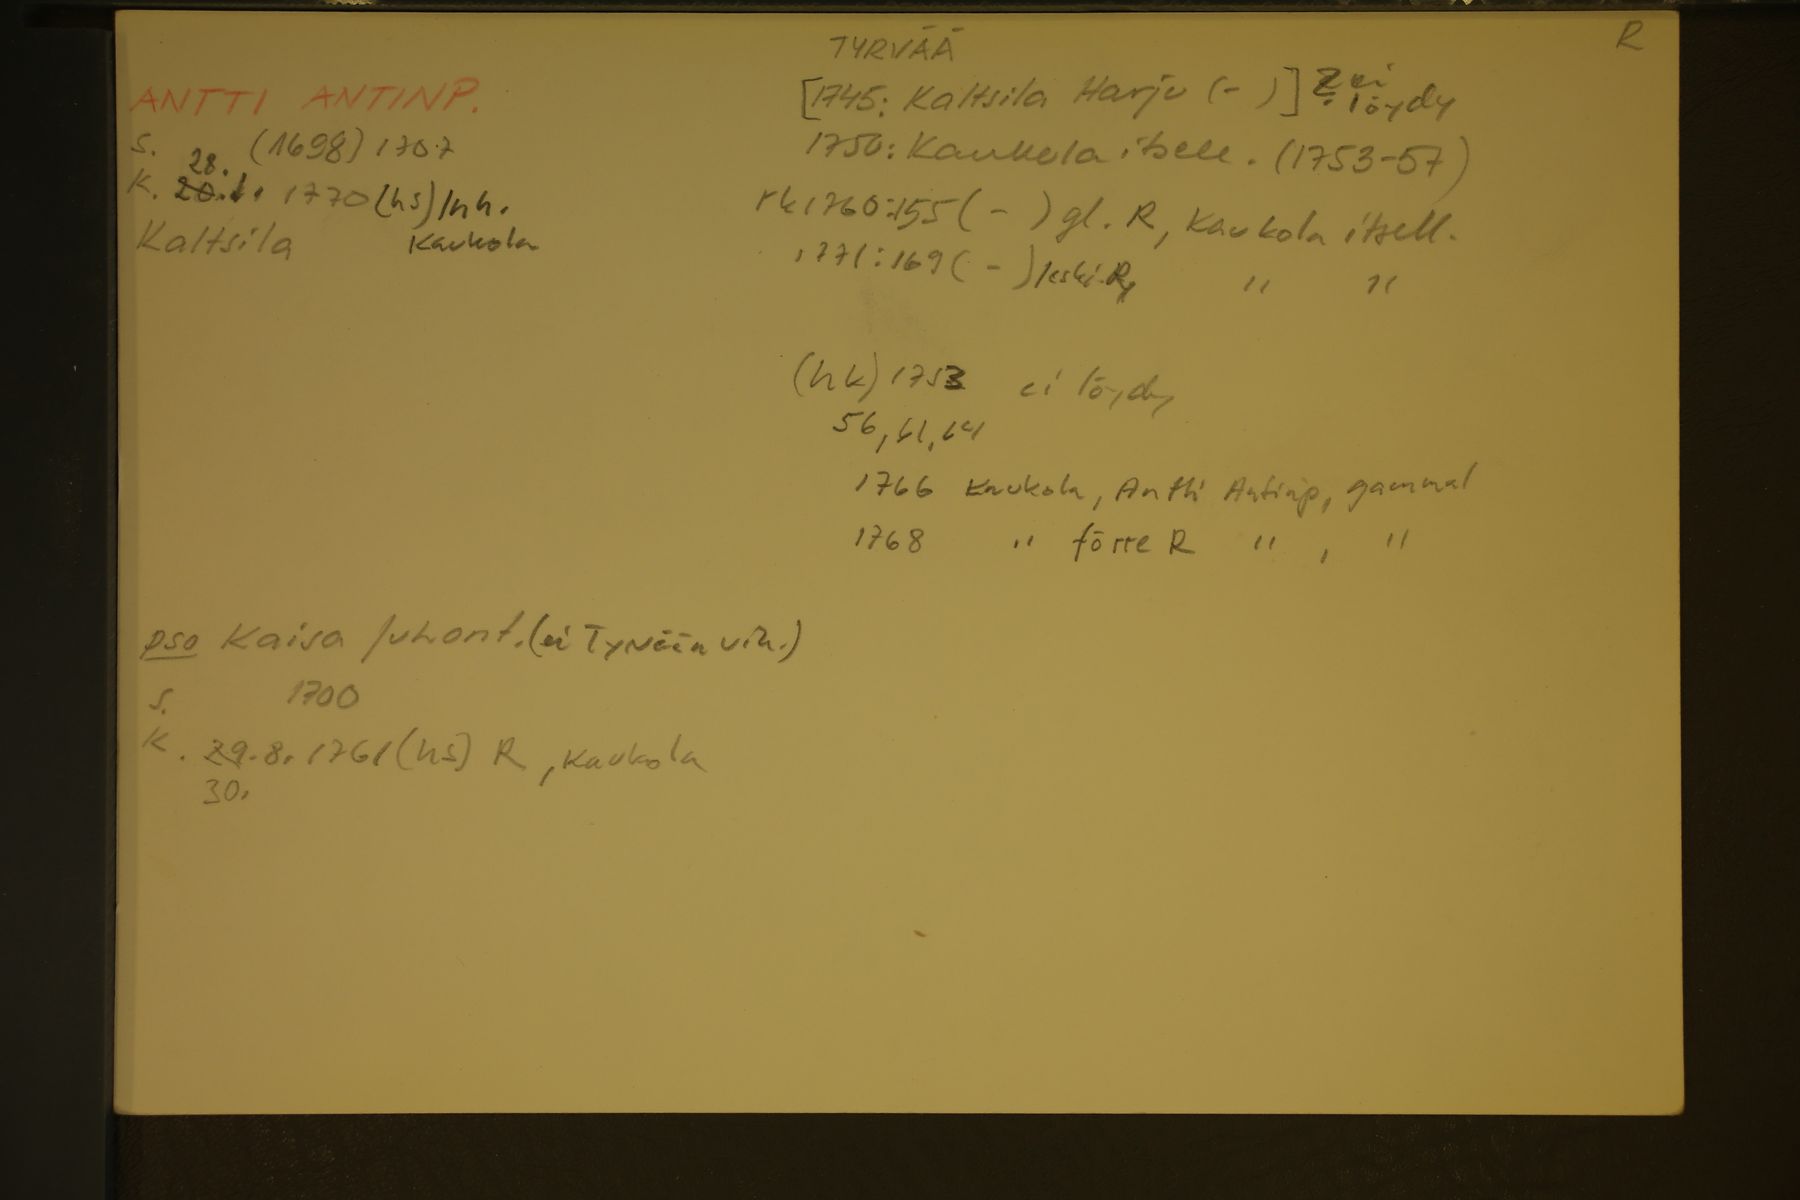 TYRVÄÄ
R
ANTTI ANTINP.
s. (1698) 1707
28.
k. 20.1. 1770 (hs) Inh.
Kaltsila Kaukola
[1745: Kaltsila Harju (-)] ei
löydy
1750: Kaukola itsell. (1753-57)
rk 1760:155 (-) gl. R, Kaukola itsell.
1771:169 (-) leski R, " "
(hk) 1753 ei löydy
56, 61, 64
1766 Kaukola, Antti Antinp, gammal
1768 " förre R " , "
pso Kaisa Juhont. (ei Tyrvään vih.)
s. 1700
k. 29.8.1761 (hs) R, Kaukola
30.